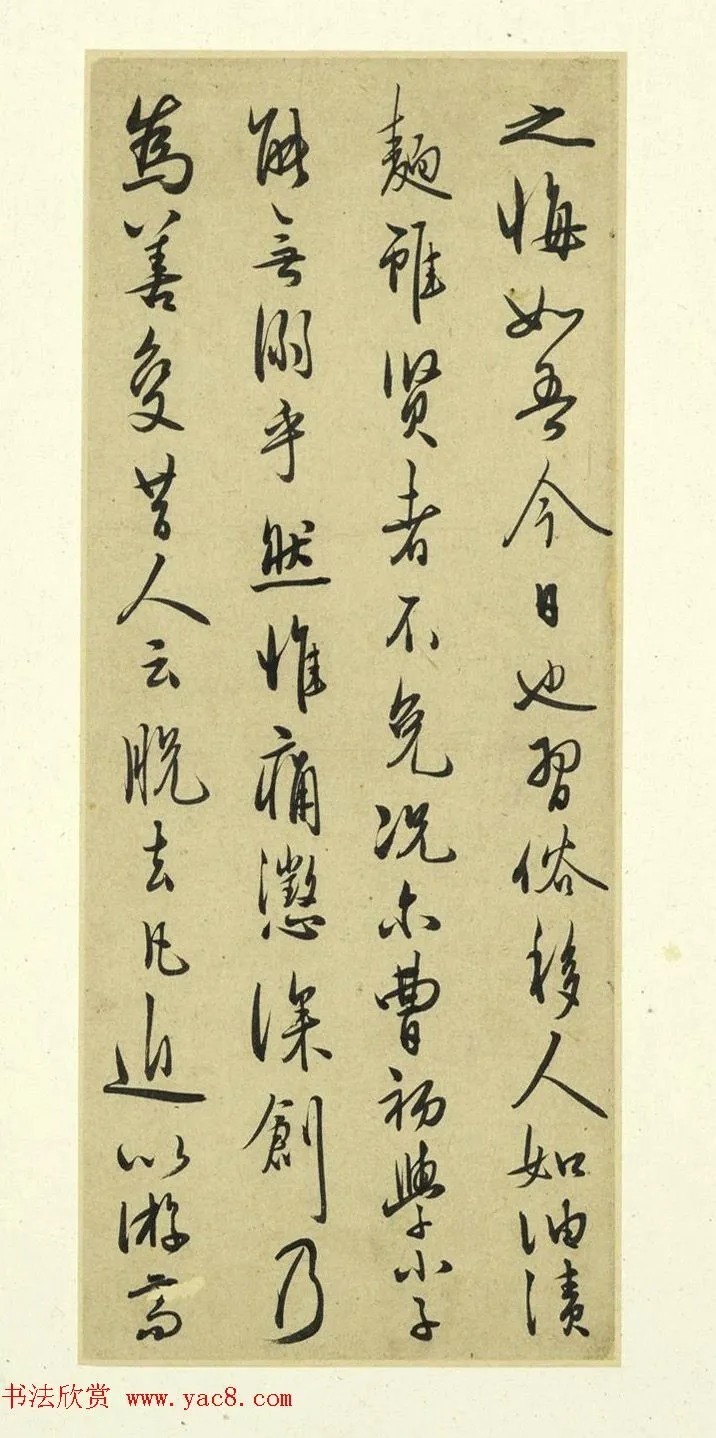 之悔如吾今日也習俗移人如油漬
麵雖賢者不免况尔曹初學小子
能無溺乎然惟痛懲深創乃
為善變昔人云脫去凡近以游高
书法欣赏 www.yac8.com